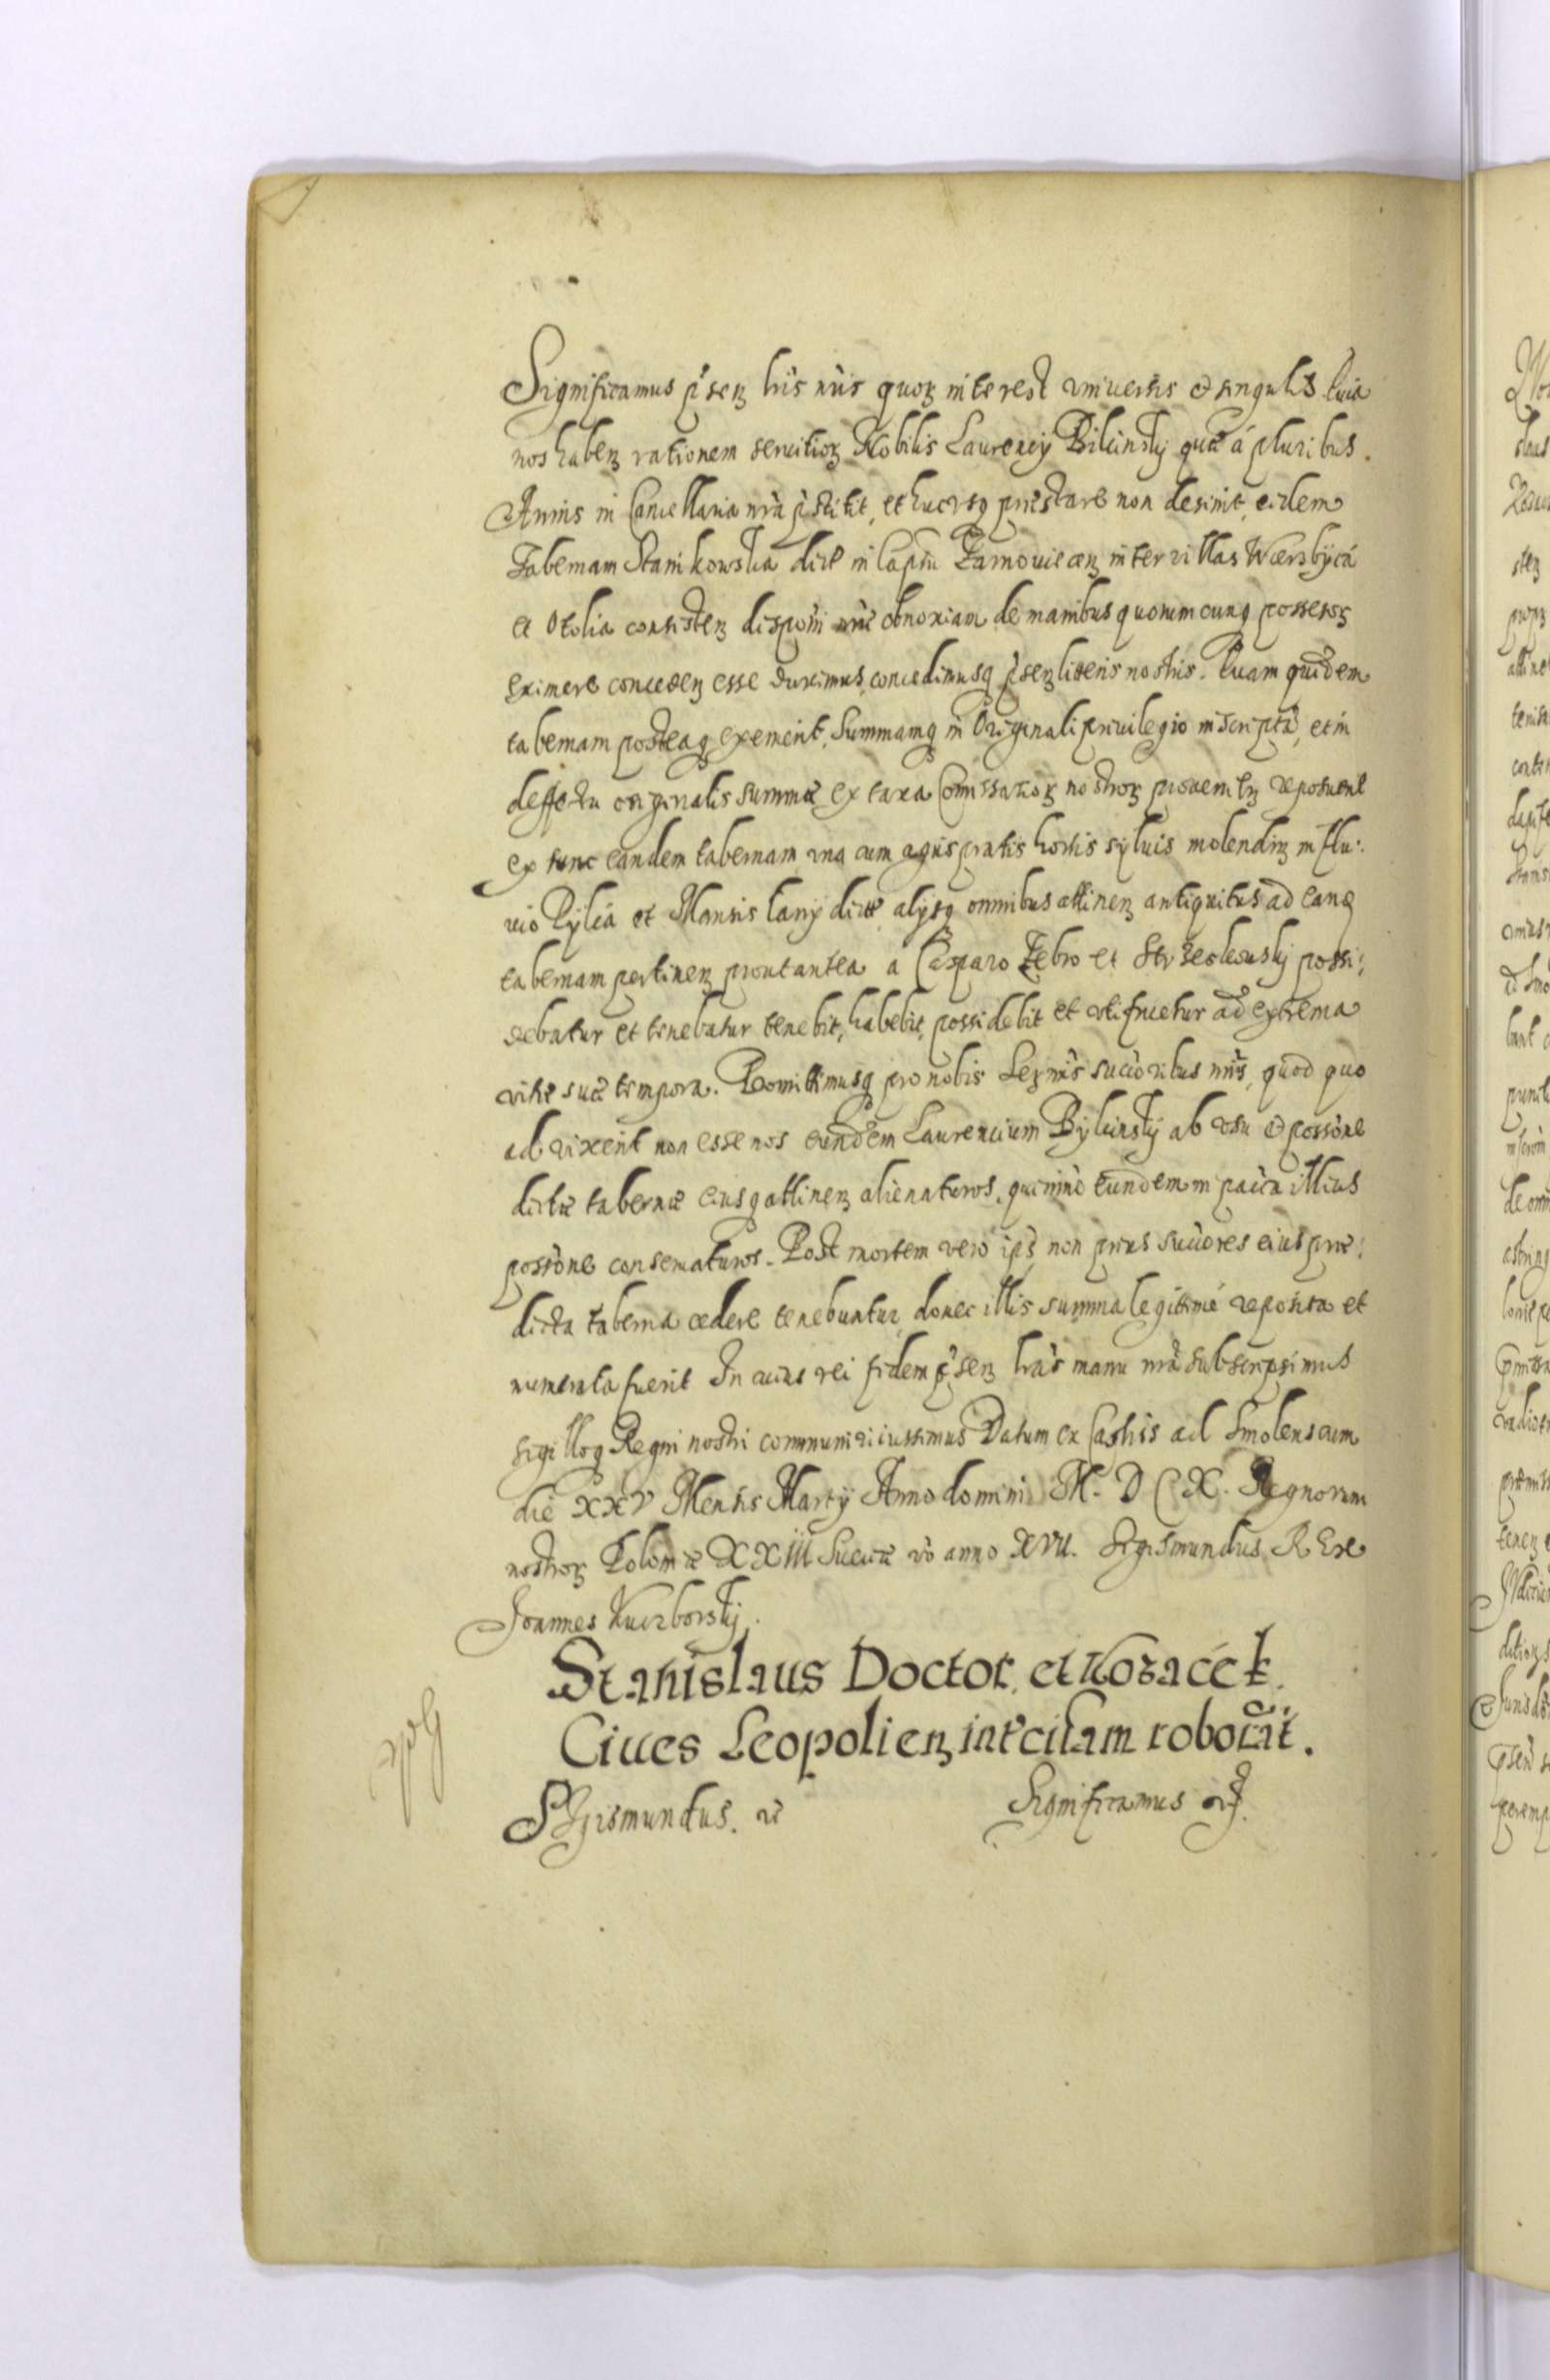 Significamus p̃senʒ lr̃is nr̃is quoʒ interest vniuersis et singulis Quia
nos habenʒ rationem seruitioʒ Nobilis Laurencij Bilinskij quæ á pluribus
Annis in Cancellaria nr̃a p̃stitit, et hucvsq præstare non desinit, eidem
Tabernam Stanikowska dict in Captũ Tarnouicenʒ inter villas Wierzbycá
et Otolia consistenʒ dispõni nr̃æ obnoxiam de manibus quorumcunq possessoʒ
eximere concedenʒ esse duximus, concedimusq p̃senʒ literis nostris. Quam quidem
tabernam posteaq exemerit, Summamq in Originali priuilegio inscriptã, et in
deffectu originalis summæ ex taxa Com̃issarioʒ nostroʒ prouenienʒ reposuerit
ex tunc eandem tabernam vna cum agris pratis hortis syluis molendinʒ in flu:
uio Pylcá et Mansis Łany dict alijsq omnibus attinenʒ antiquitus ad eanq
tabernam pertinenʒ prout antea a Casparo Zebro et possi:
debatur et tenebatur tenebit, habebit, possidebit et vtifruetur ad extrema
vitæ suæ tempora. Promittimusq pro nobis Serm̃is succ̃oribus nr̃is, quod quo
ad vixerit non esse nos eundem Laurencium Bylinskij ab vsu et possõne
dictæ tabernæ eiusq attinenʒ alienaturos, quinimõ eundem in pac̃ca illius
possõne conseruaturos. Post mortem vero ips̃ non prius succ̃ores eius præ:
dicta taberna cedere tenebuntur donec illis summa legittimé reposita et
numerata fuerit In cuius rei fidem p̃senʒ lr̃as manu nr̃a subscripsimus
sigilloq Regni nostri communiri iussimus Datum ex Castris ad Smolenscum
die XXV Mensis Martij Anno domini M. D C X. Regnorum
nostroʒ Poloniæ XXIII Sueciæ vo anno XVII. Sigismundus REx
Joannes Kuczborskij.
Stanislaus Doctor et Kozacek
Ciues Leopolienʒ intercisam roborãt.
SIgismundus. Significamus